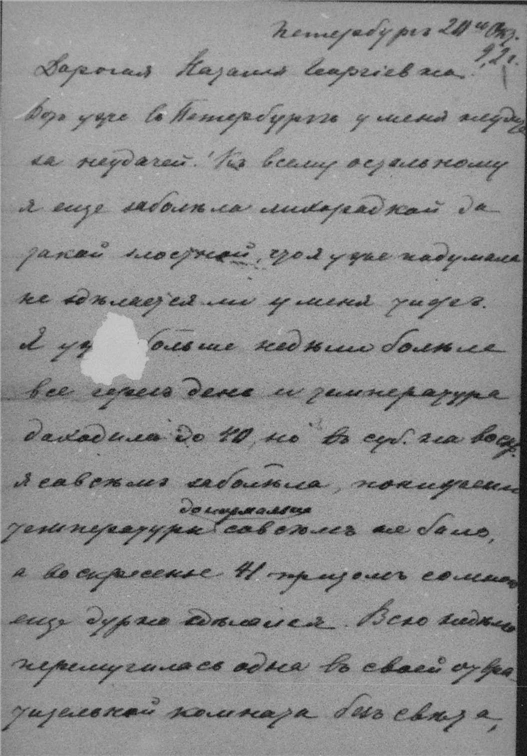 Петербургъ 20го Окт.
92 г.
Дорогая Наталія Георгіевна
Вотъ уже въ Петербургѣ у меня неудача
за неудачей! Къ всему остальному
я еще заболѣла лихорадкой да
такой злостной, что я уже надумала
не сдѣлается ли у меня тифъ.
Я больше недѣли болѣла
все черезъ день и температура
даходила до 40, но въ суб. на воскр.
я савсѣмъ заболѣла, пониженiя
до нормальнаго
температуры савсѣмъ не было,
а воскресенье 41 при
еще дурно сдѣлался. Всю недѣлю
перемучилась одна въ своей отвра
тительной комната безъ свѣта,